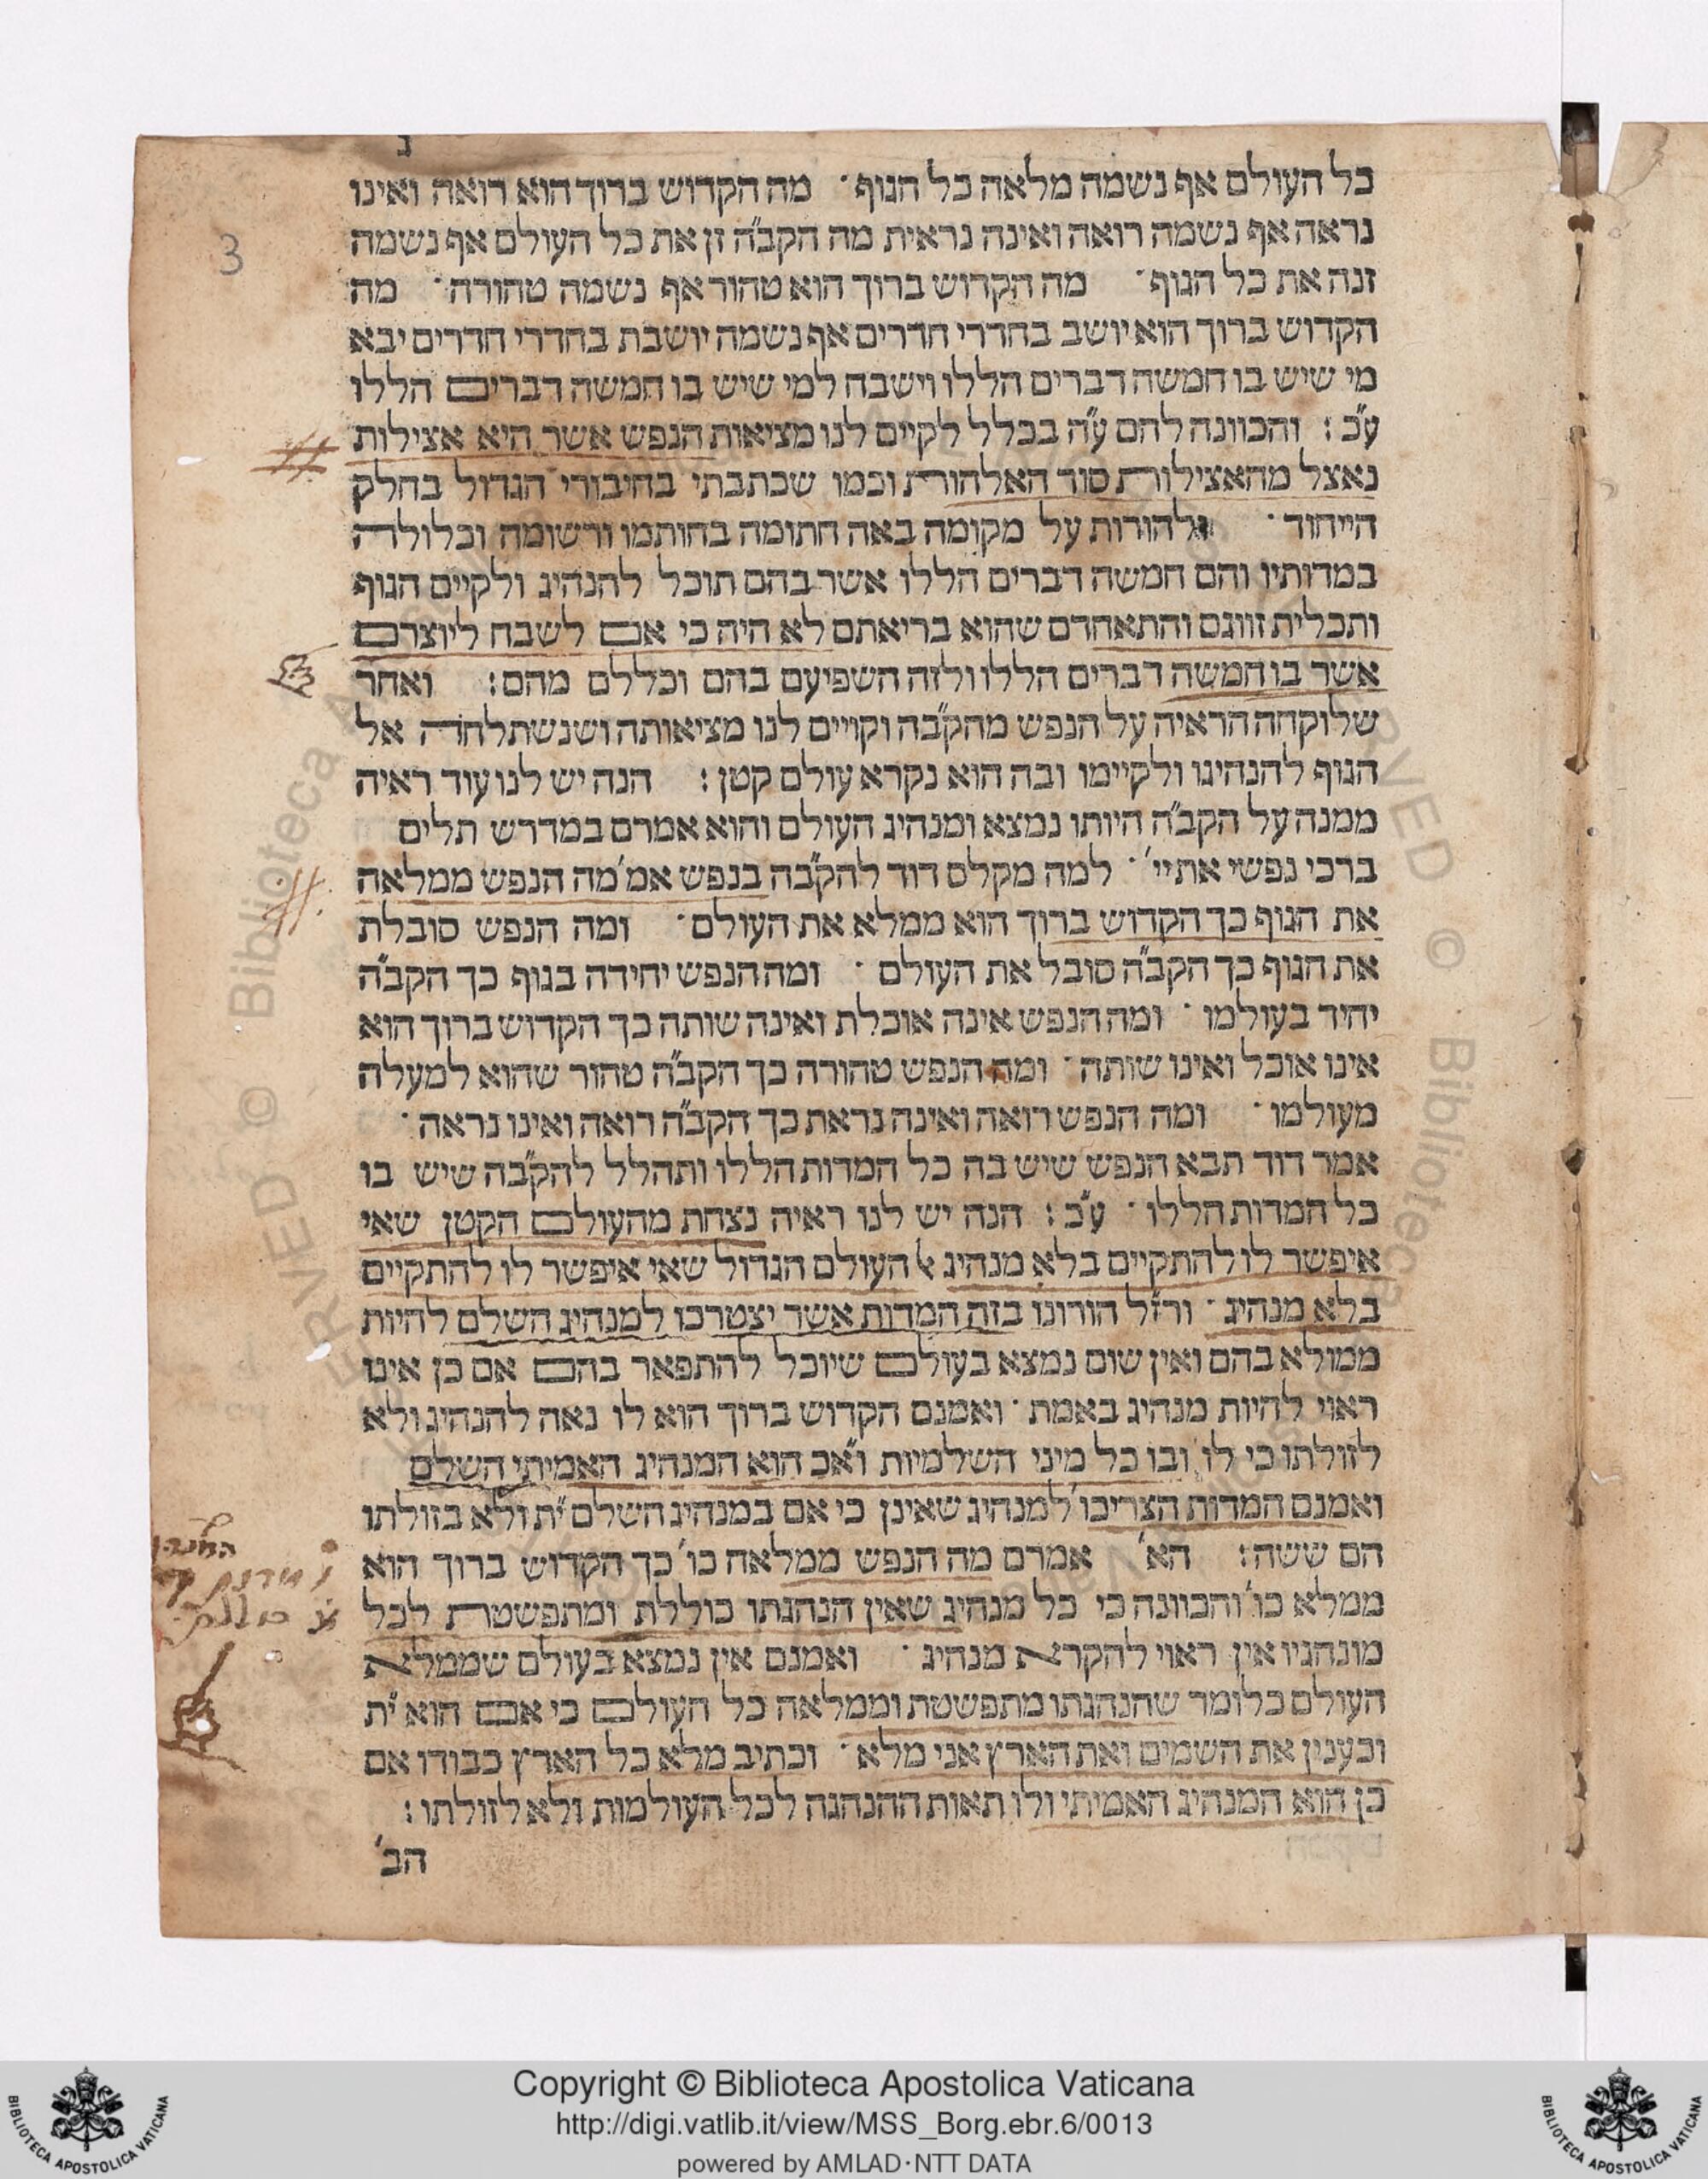 ג
כל העולם אף נשמה מלאה כל הגוף · מה הקדוש ברוך הוא רואה ואינו
3
נראה אף נשמה רואה ואינה נראית מה הקב״ה זן את כל העולם אף נשמה
זנה את כל הגוף · מה הקדוש ברוך הוא טהור אף נשמה טהורה · מה
הקדוש ברוך הוא יושב בחדרי חדרים אף נשמה יושבת בחדרי חדרים יבא
מי שיש בו חמשה דברים הללו וישבח למי שיש בו חמשה דברים הללו
ע״כ : והכוונה להם ע״ה בכלל לקיים לנו מציאות הנפש אשר היא אצילות
נאצל מהאצילות סוד האלהות וכמו שכתבתי בחיבורי הגדול בחלק
הייחוד · ולהורות על מקומה באה חתומה בחותמו ורשומה וכלולה
במדותיו והם חמשה דברים הללו אשר בהם תוכל להנהיג ולקיים הגוף
ותכלית זווגם והתאחדם שהוא בריאתם לא היה כי אם לשבח ליוצרם
אשר בו חמשה דברים הללו ולזה השפיעם בהם וכללם מהם : ואחר
שלוקחה הראיה על הנפש מהק״בה וקויים לנו מציאותה ושנשתלחה אל
הגוף להנהיגו ולקיימו ובה הוא נקרא עולם קטן : הנה יש לנו עוד ראיה
ממנה על הקב״ה היותו נמצא ומנהיג העולם והוא אמרם במדרש תלים
ברכי נפשי את יי׳ · למה מקלס דוד להק״בה בנפש אמ׳ מה הנפש ממלאה
את הגוף כך הקדוש ברוך הוא ממלא את העולם · ומה הנפש סובלת
את הגוף כך הקב״ה סובל את העולם · ומה הנפש יחידה בגוף כך הקב״ה
יחיד בעולמו · ומה הנפש אינה אוכלת ואינה שותה כך הקדוש ברוך הוא
אינו אוכל ואינו שותה · ומה הנפש טהורה כך הקב״ה טהור שהוא למעלה
מעולמו · ומה הנפש רואה ואינה נראת כך הקב״ה רואה ואינו נראה ·
אמר דוד תבא הנפש שיש בה כל המדות הללו ותהלל להק״בה שיש בו
כל המדות הללו · ע״כ : הנה יש לנו ראיה נצחת מהעולם הקטן שאי
איפשר לו להתקיים בלא מנהיג אל העולם הגדול שאי איפשר לו להתקיים
בלא מנהיג · ורז״ל הורונו בזה המדות אשר יצטרכו למנהיג השלם להיות
ממולא בהם ואין שום נמצא בעולם שיוכל להתפאר בהם אם כן אינו
ראוי להיות מנהיג באמת · ואמנם הקדוש ברוך הוא לו נאה להנהיג ולא
לזולתו כי לו ובו כל מיני השלמיות וא״כ הוא המנהיג האמיתי השלם
ואמנם המדות הצריכו׳ למנהיג שאינן כי אם במנהיג השלם ית״ ולא בזולתו
הם ששה : הא׳ אמרם מה הנפש ממלאה כו׳ כך הקדוש ברוך הוא
ממלא כו׳ והכוונה כי כל מנהיג שאין הנהגתו כוללת ומתפשטת לכל
מונהגיו אין ראוי להקרא מנהיג · ואמנם אין נמצא בעולם שממלא
העולם כלומר שהנהגתו מתפשטת וממלאה כל העולם כי אם הוא ית״
וכענין את השמים ואת הארץ אני מלא · וכתיב מלא כל הארץ כבודו אם
כן הוא המנהיג האמיתי ולו תאות ההנהגה לכל העולמות ולא לזולתו :
הב׳
Copyright © Biblioteca Apostolica Vaticana
http://digi.vatlib.it/view/MSS_Borg.ebr.6/0013
powered by AMLAD·NTT DATA